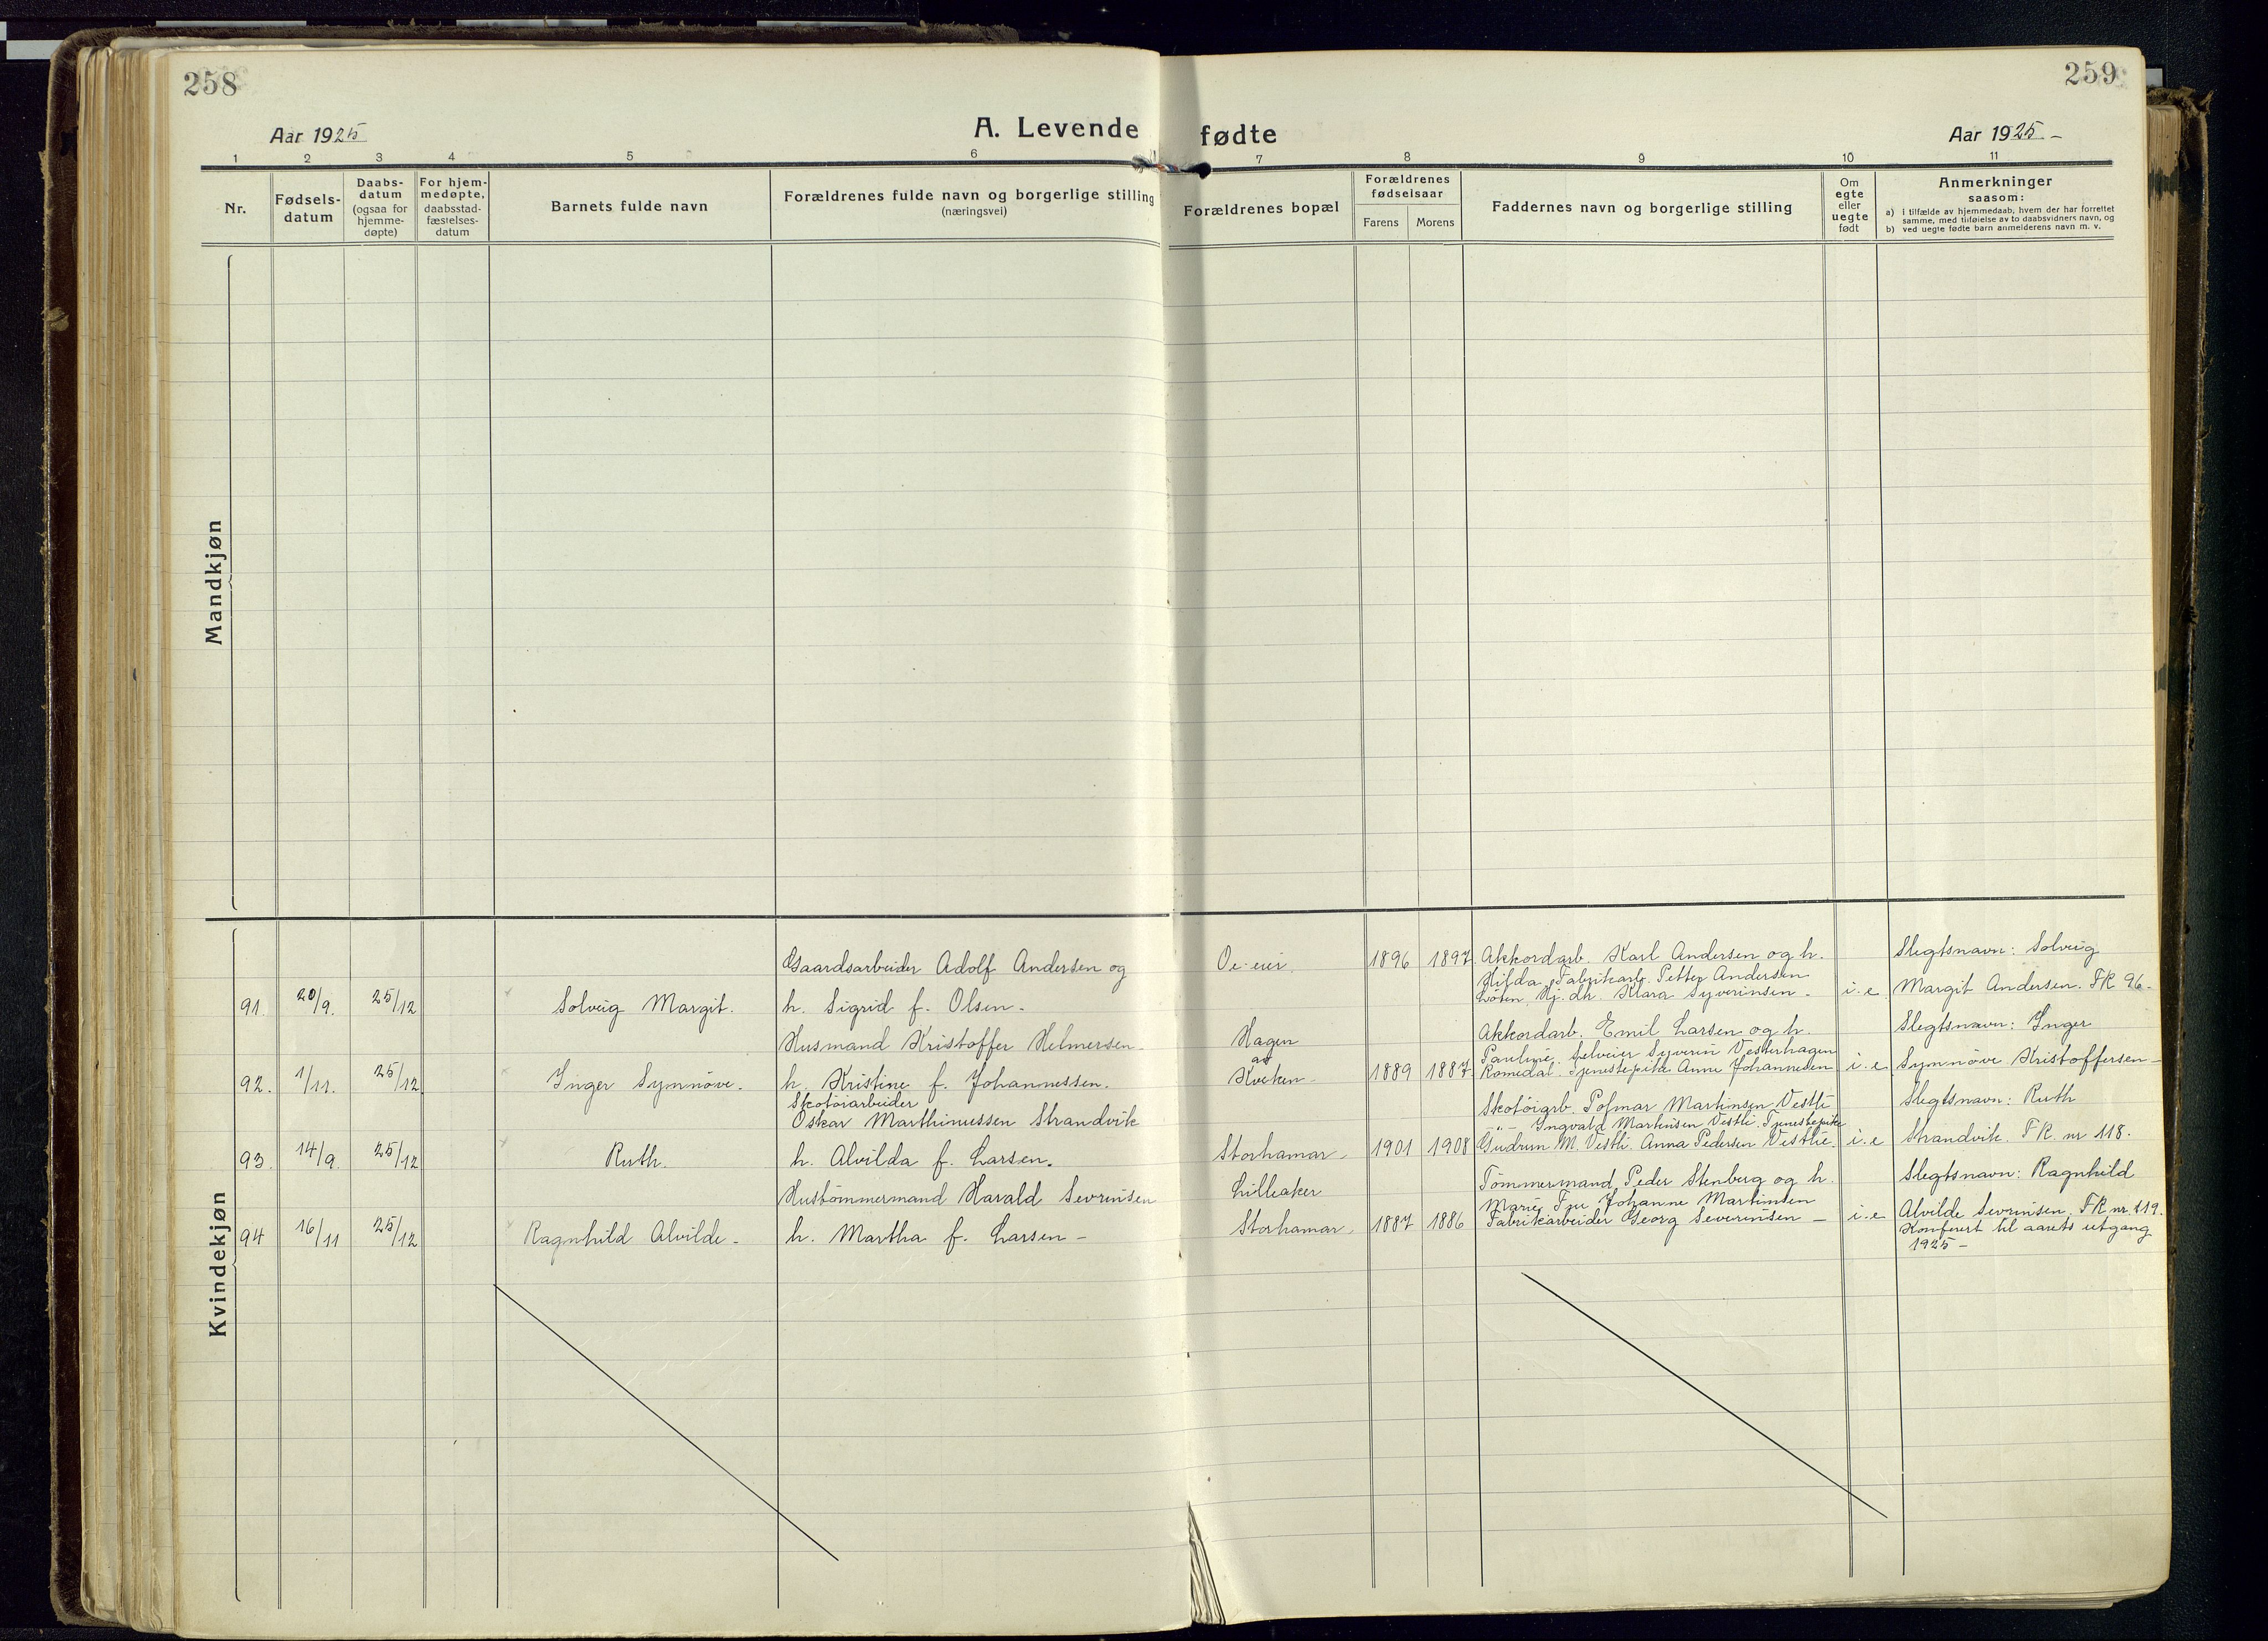 258
259
Aar 1925
A. Levende fødte
Aar 1925 –
1 2 3 4 5 6 7 8 9 10 11
Nr.
Fødsels-
datum
Daabs-
datum
(ogsaa for
hjemme-
døpte)
For hjem-
medøpte,
daabsstad-
fæstelses-
datum
Barnets fulde navn
Forældrenes fulde navn og borgerlige stilling
(næringsvei)
Forældrenes bopæl
Forældrenes
fødselsaar
Farens Morens
Faddernes navn og borgerlige stilling
Om
egte
eller
uegte
født
Anmerkninger
saasom:
a) i tilfælde av hjemmedaab, hvem der har forrettet
samme, med tilføielse av to daabsvidners navn, og
b) ved uegte fødte barn anmelderens navn m. v.
Mandkjøn
Kvindekjøn
91. 20/9. 25/12 Solveig Margit.
Gaardsarbeider Adolf Andersen og
h. Sigrid f. Olsen.
1896 1897
Akkordarb. Karl Andersen og h.
Hilda, Fabrikarb. Petter Andersen
Løten, Hj. dh. Klara Syverinsen –
i. e.
Slegtsnavn: Solveig
Margit Andersen. FR 96.
92. 1/11. 25/12 Inger Synnöve.
Husmand Kristoffer Helmersen
h. Kristine f. Johannessen.
Hagen
av
Kveken
1889 1887
Akkordarb. Emil Larsen og h.
Pauline, Selveier Syverin Vesterhagen
Romedal. Tjenestepike Anne Johannesen
i. e
Slegtsnavn: Inger
Synnöve Kristoffersen –
93. 14/9. 25/12 Ruth.
Skotøiarbeider
Oskar Marthinussen Strandvik
h. Alvilda f. Larsen.
Storhamar
1901 1908
Skotøiarb. Polmar Martinsen Vestli
– " – Ingvald Martinsen Vestli. Tjenestepike
Gudrun M. Vestli. Anna Pedersen Vestlie.
i. e
Slegtsnavn: Ruth
Strandvik. FR. nr 118.
94 16/11 25/12 Ragnhild Alvilde –
Hustømmermand Harald Sevrinsen
h. Martha f. Larsen –
Lilleaker
Storhamar
1887 1886
Tømmermand Peder Stenberg og h.
Marie, Fru Johanne Martinsen
Fabrikarbeider Georg Severinsen –
i. e
Slegtsnavn: Ragnhild
Alvilde Sevrinsen. FR nr. 119.
Konferert til aarets utgang
1925 –